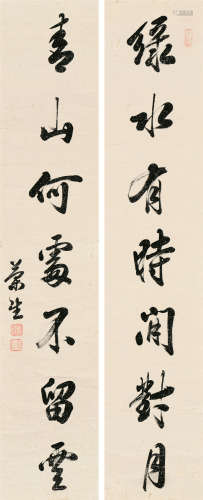 綠水有時閒對月
青山何處不留雲
蘭生